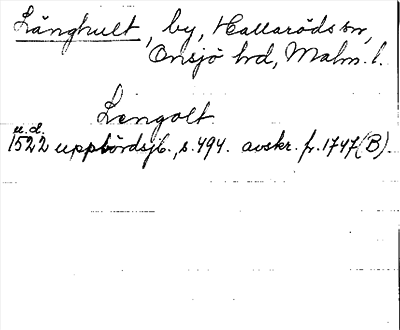 Långhult, by, Hallaröds sn,
Onsjö hd, Malm. l.
Lengolt
u.d.
1522 uppbördsjb., s. 494. avskr. fr. 1747 (B).